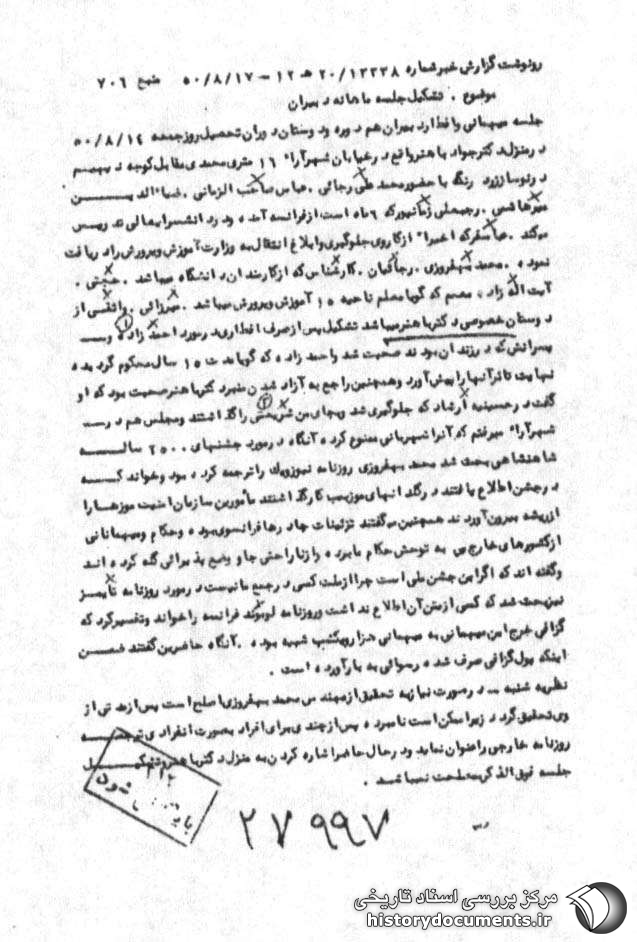 رونوشت گزارش خبر شماره ۲۰/۱۳۲۳۸ هـ ۱۲ – ۵۰/۸/۱۷ منبع ۷۰۶
موضوع . تشکیل جلسه ماهانه دبیران
جلسه میهمانی وافطار دبیران هم دوره ودوستان دوران تحصیل روزجمعه ۵۰/۸/۱۴
درمنزل دکترجواد باهنر واقع درخیابان شهرآرا" ۱۶ متری محمدی مقابل کوچه
باحضور محمد علی رجائی . عباس صاحب الزمانی . ضیا" الدین
میرهاشمی . رجبعلی که ۶ ماه است ازفرانسه آمده ودر عالی تدریس
میکند . که اخیرا" ازکاروی جلوگیری وابلاغ انتقال به وزارت آموزش وپرورش رادریافت
نموده . محمد بهفروزی . کارشناس که ازکارمندان دانشگاه میباشد .
آیت اله زاده معمم که گویا معلم ناحیه ۱۵ آموزش وپرورش میباشد . میرزائی . از
دوستان خصوصی دکترباهنرمیباشد تشکیل پس ازصرف افطاری درمورد احمد زاده و
پسرانش که درزندان بودند صحبت شد واحمد زاده که گویا مدت ۱۵ سال محکوم گردیده
نهایت تاثرآنهارا پیش آورد وهمچنین راجع به آزاد شدن دکترباهنرصحبت بود که او
گفت درحسینیه ارشاد که جلوگیری شد وبجای من شریعتی راگذاشتند ومجلس هم در
شهرآرا" میرفتم که آنرا شهربانی ممنوع کرده آنگاه درمورد جشنهای ۲۵۰۰ ساله
شاهنشاهی بحث شد محمد بهفروزی روزنامه نیوزویک راترجمه کرده بود وخواند که
درجشن اطلاع یافتند درگلدانهای موزبمب کارگذاشتند مأمورین سازمان امنیت موزهارا
ازریشه بیرون آوردند همچنین میگفتند تزئینات چادرها فرانسوی بوده وحکام ومیهمانانی
ازکشورهای خارجی به نام برده رازناراحتی جا و وضع پذیرائی گله کرده اند
وگفته اند که اگراین جشن ملی است چرا ازملت کسی درجمع مانیست درمورد روزنامه تایمز
نیزبحث شد که کسی ازمتن آن اطلاع نداشت وروزنامه لوموند فرانسه راخواند وتفسیرکرد که
گزافی خرج این میهمانی به میهمانی هزارویکشب شبیه بوده . آنگاه حاضرین گفتند ضمن
اینکه پول گزافی صرف شده رسوائی به بارآورده است .
نظریه شنبه – درصورت نیازبه تحقیق ازمحمد بهفروزی اصلح است پس ازمدتی از
وی تحقیق گردد زیرا ممکن است نامبرده پس ازچندی برای افراد بصورت انفرادی ترجمه
روزنامه خارجی راعنوان نماید ودرحال حاضراشاره کردن به منزل دکترباهنر وتشکیل
جلسه فوق الذکر به مصلحت نمیباشد .
۳۱۲
۲۷۹۹۷
مرکز بررسی اسناد تاریخی
historydocuments.ir